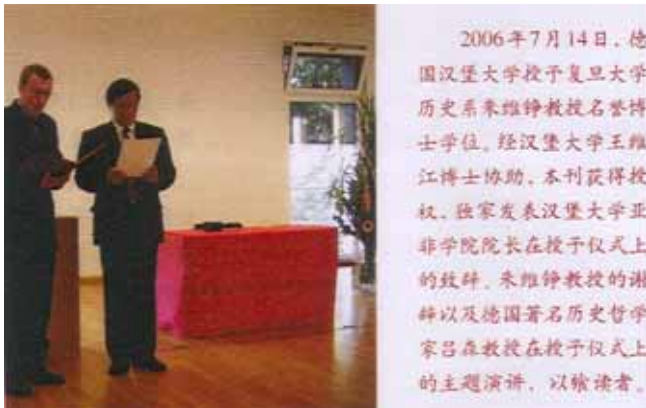 2006年7月14日，德
国汉堡大学授予复旦大学
历史系朱维铮教授名誉博
士学位。经汉堡大学王维
江博士协助，本刊获得授
权，独家发表汉堡大学亚
非学院院长在授予仪式上
的致辞、朱维铮教授的谢
辞以及德国著名历史哲学
家吕森教授在授予仪式上
的主题演讲，以飨读者。